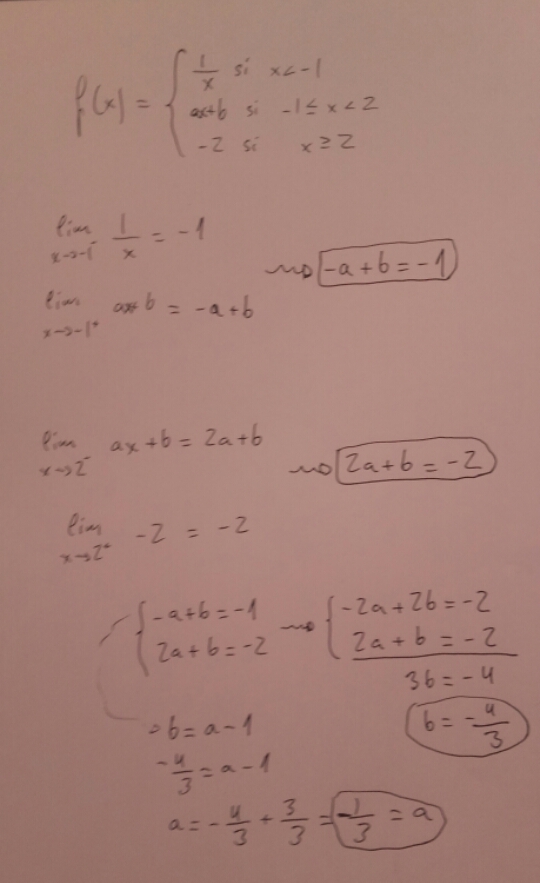 f(x) = { 1/x si x < -1
ax+b si -1 ≤ x < 2
-2 si x ≥ 2
lim x→-1⁻ 1/x = -1
⇝ -a+b = -1
lim x→-1⁺ ax+b = -a+b
lim x→2⁻ ax+b = 2a+b
⇝ 2a+b = -2
lim x→2⁺ -2 = -2
{ -a+b = -1 ⇝ { -2a+2b = -2
2a+b = -2 2a+b = -2
3b = -4
b = a-1 b = -4/3
-4/3 = a-1
a = -4/3 + 3/3 = -1/3 = a